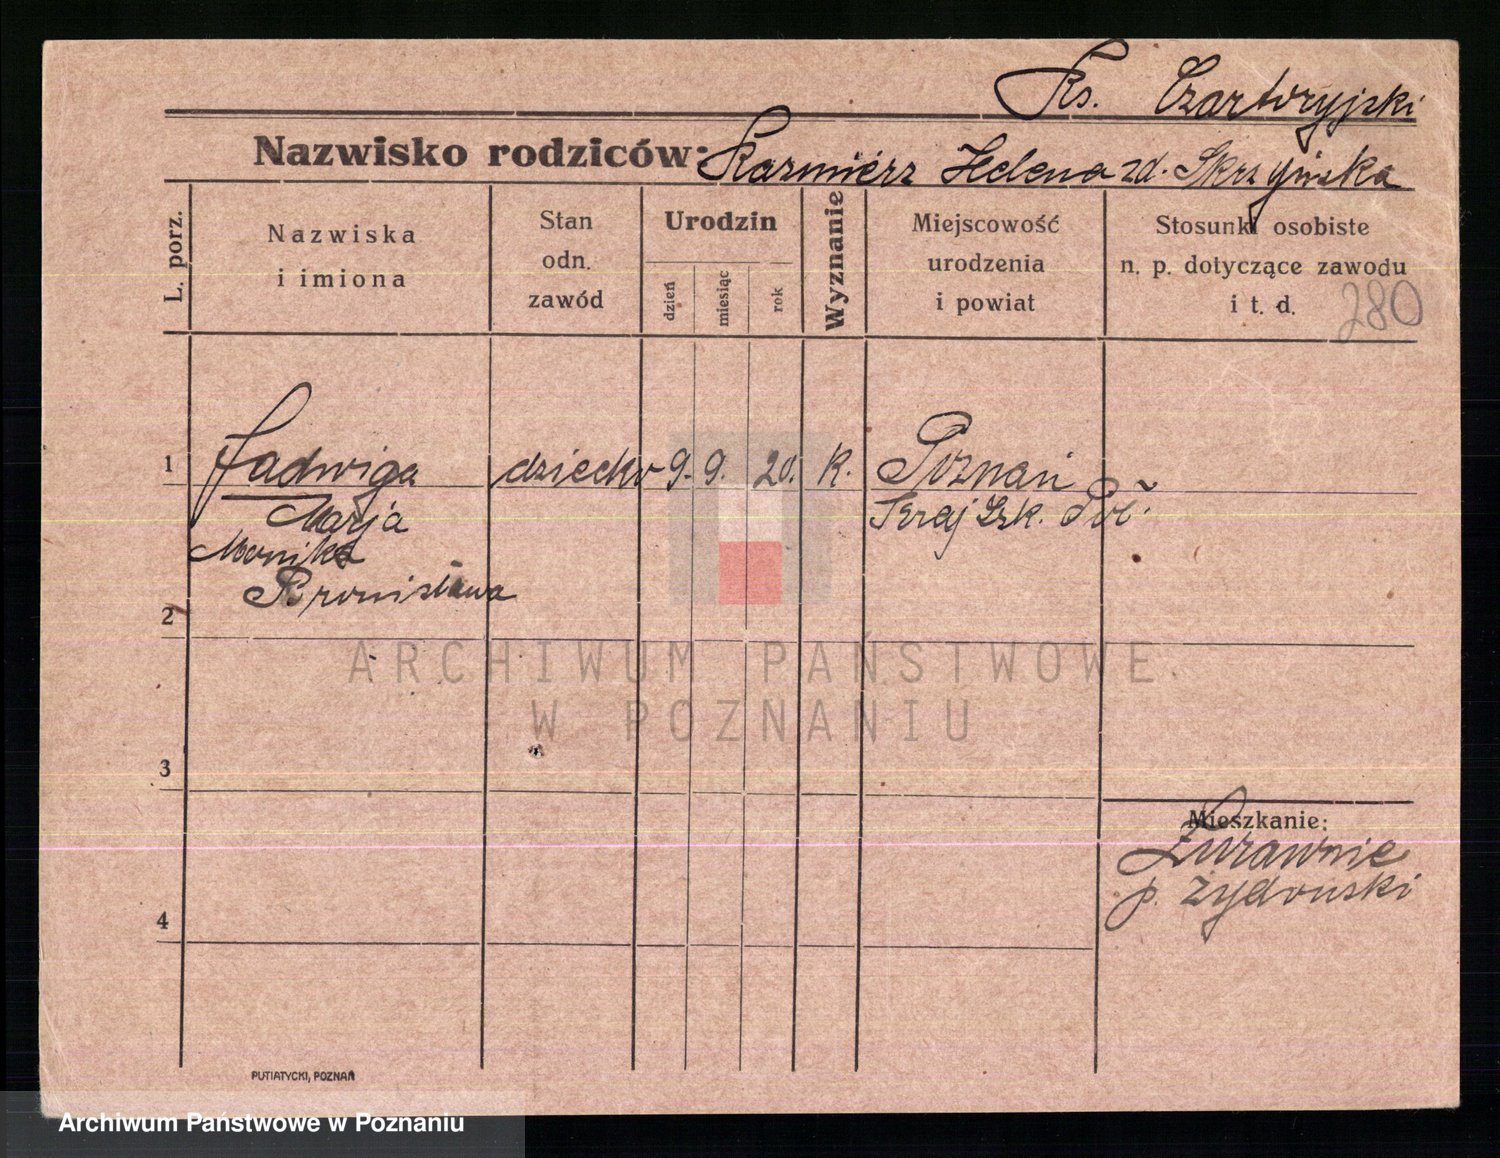 Ks. Czartoryjski
Nazwisko rodziców: Kazmiérz Helena zd. Skrzyńska
L. porz.
Nazwiska
i imiona
Stan
odn.
zawód
Urodzin
dzień
miesiąc
rok
Wyznanie
Miejscowość
urodzenia
i powiat
Stosunki osobiste
n. p. dotyczące zawodu
i t. d.
280
1 Jadwiga dziecko 9. 9. 20. k. Poznań
Marja
Monika
Bronisława
2
3
4
Mieszkanie:
Żurawnie
p. Żydowski
ARCHIWUM PAŃSTWOWE
W POZNANIU
PUTIATYCKI, POZNAŃ
Archiwum Państwowe w Poznaniu